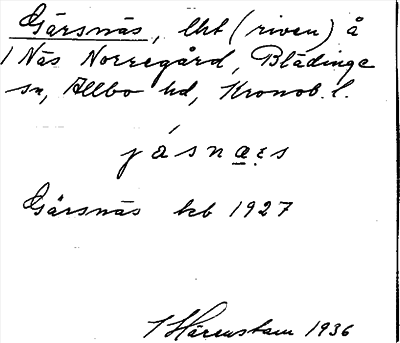 Gärsnäs, lht (riven) å
1 Näs Norregård, Blädinge
sn, Allbo hd, Kronob. l.
jásnæs
Gärsnäs kb 1927
Härenstam 1936